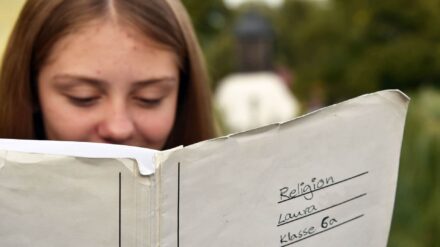 Religion
Laura
Klasse 6a